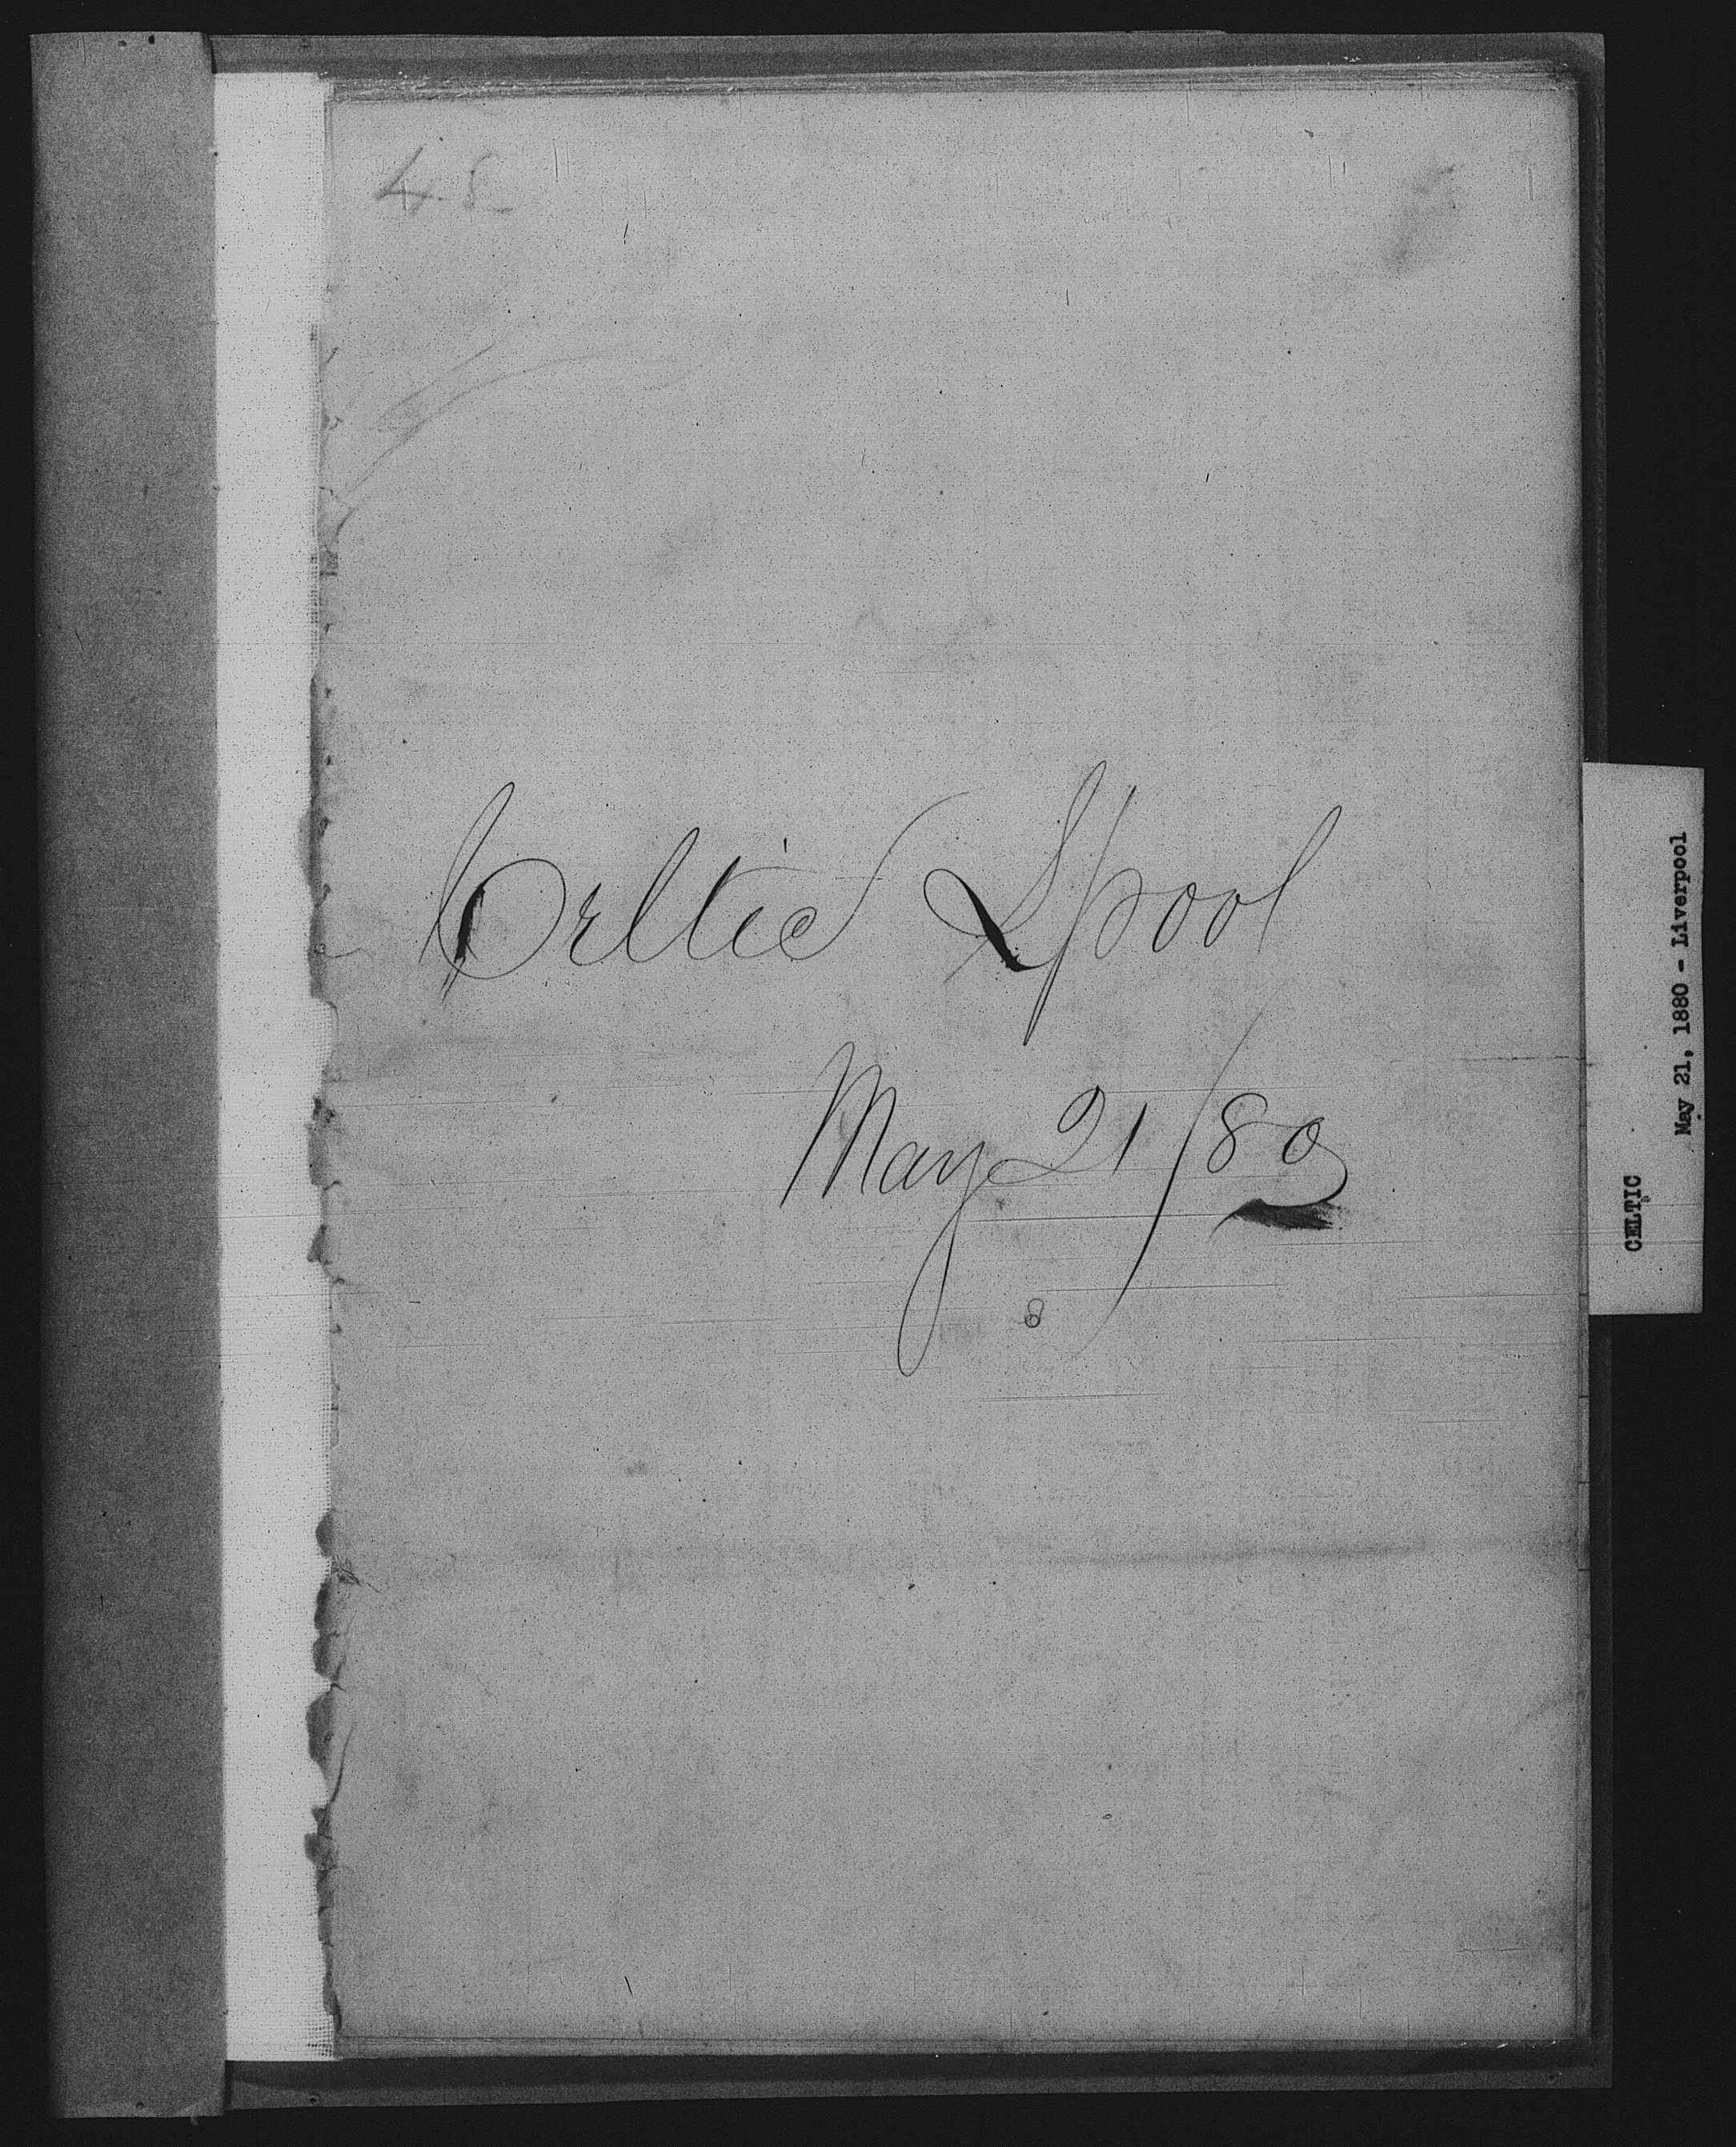 48
Celtic Lpool
May 21/80
CELTIC
May 21, 1880 - Liverpool